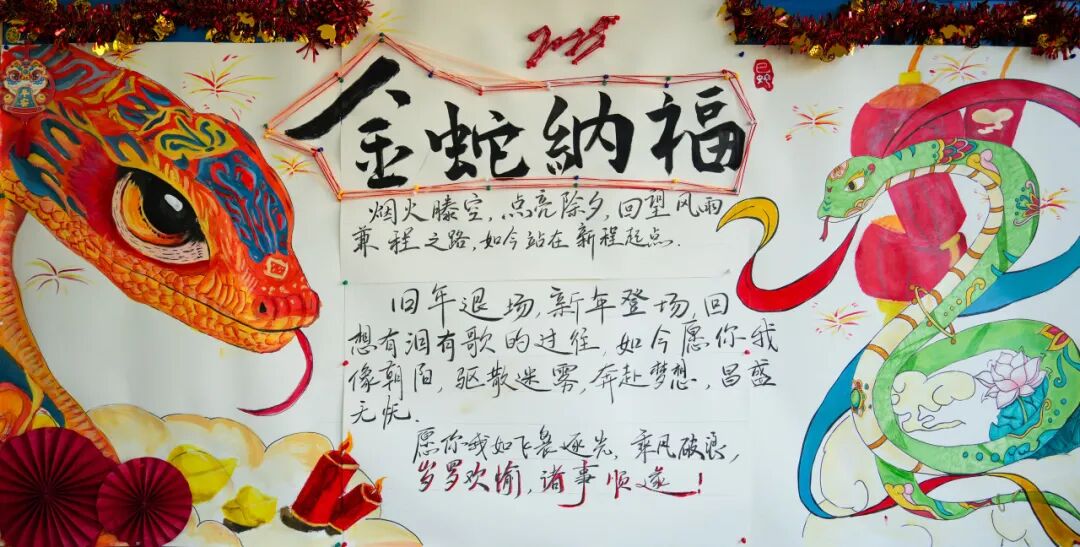 2025
金蛇納福
烟火腾空,点亮除夕,回望风雨
兼程之路,如今站在新程起点.
旧年退场,新年登场,回
想有泪有歌的过往,如今愿你我
像朝阳,驱散迷雾,奔赴梦想,昌盛
无忧.
愿你我如飞袅逐光,乘风破浪,
岁岁欢愉,诸事顺遂!
平安